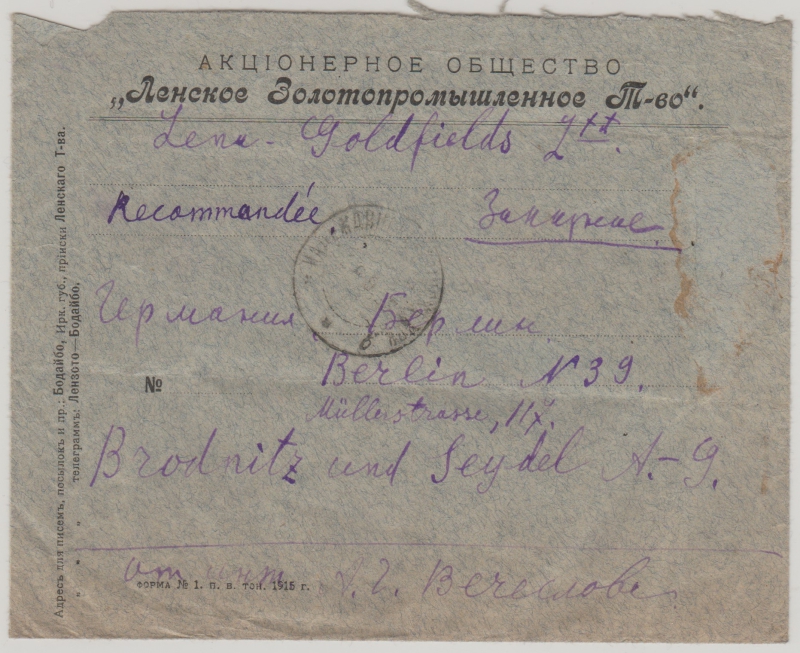 АКЦІОНЕРНОЕ ОБЩЕСТВО
„Ленское Золотопромышленное Т-во“.
Lena - Goldfields Ltd.
Recommandée Заказное
Германия, Берлин
Berlin N 39.
№
Müllerstrasse,
Brodnitz und Seydel A.-G.
от инж. А. Г. Вечеслова
ФОРМА № 1. п. в. тон. 1915 г.
Адресъ для писемъ, посылокъ и пр.: Бодайбо, Ирк. губ., пріиски Ленскаго Т-ва.
„ „ телеграммъ: Лензото—Бодайбо.